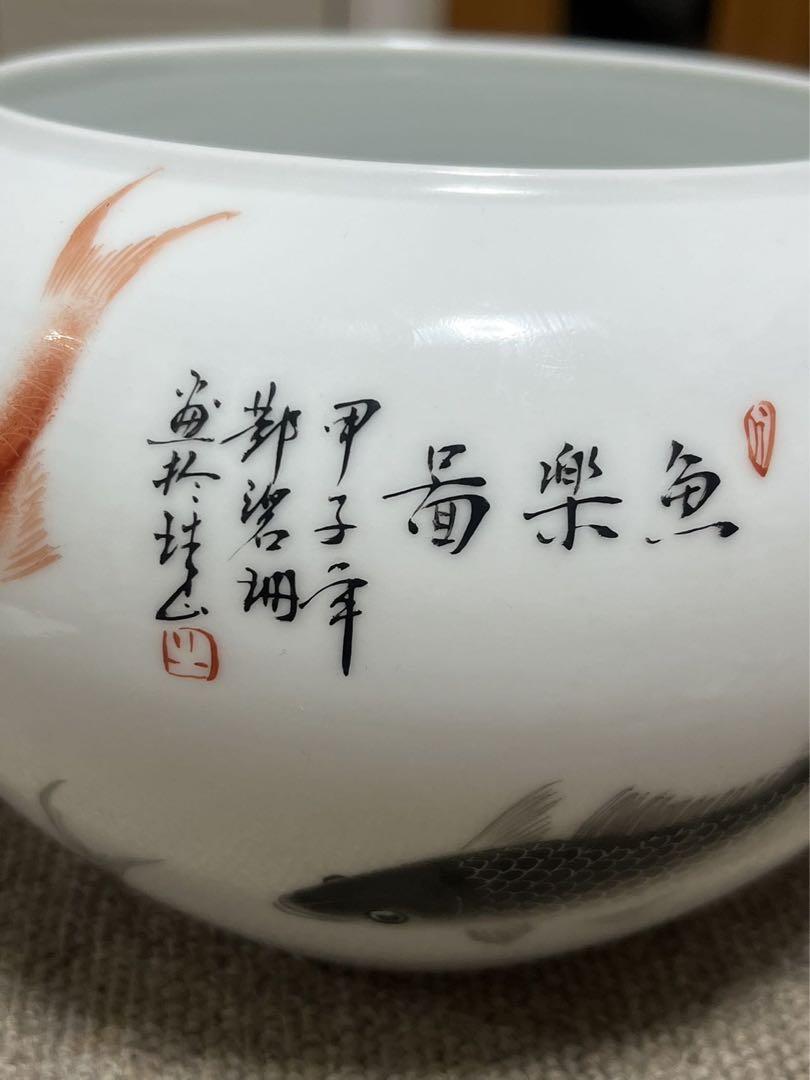 魚樂啚
甲子年
鄧碧珊
畫於珠山